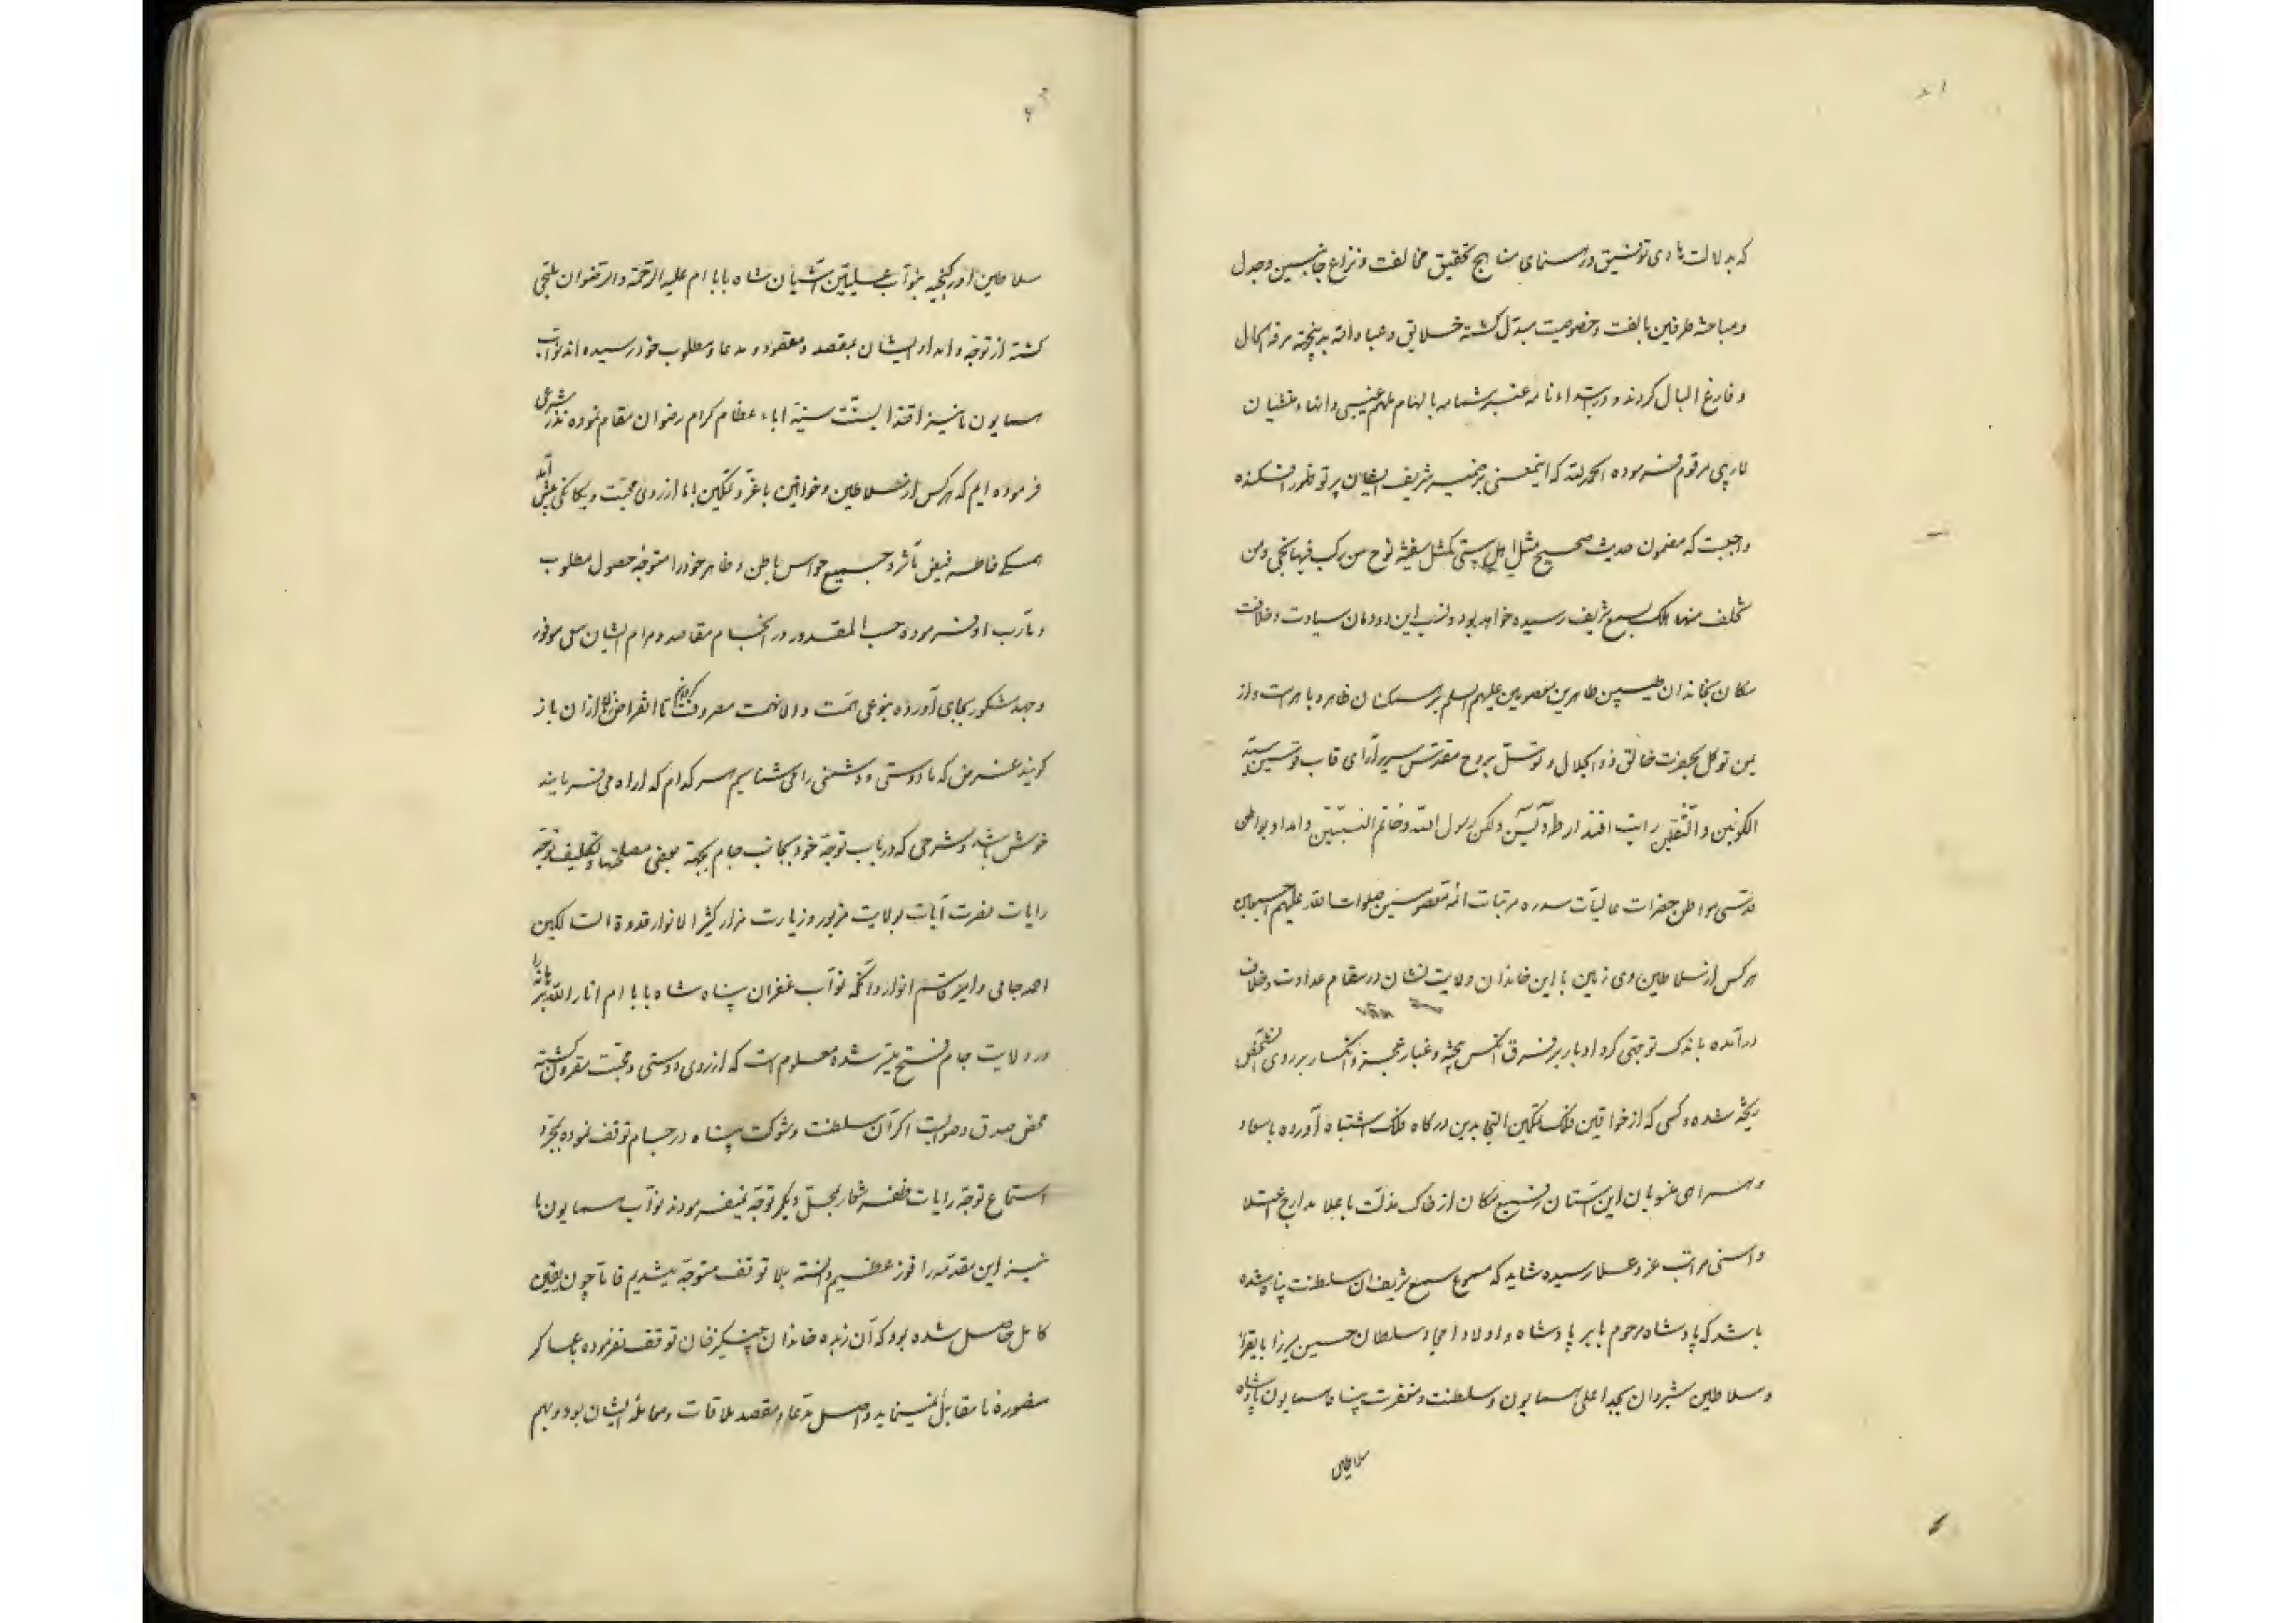 که بدلالت هادی توفیق و رهنمای مناهج تحقیق مخالفت و نزاع جانبین و جدل
و مباحثه طرفین بالفت و خصوصیت مبدل کشته خلایق و عباد الله بدینجهة مرفه الحال
و فارغ البال کردند و در ابتداء نامه عنبر شمامه بالهام ملهم غیبی و انهاء منشیان
لاریبی مرقوم فرموده الحمد لله که اینمعنی بر ضمیر شریف ایشان پرتو ظهور افکنده
واجبست که مضمون حدیث صحیح مثل اهل بیتی کمثل سفینة نوح من رکب فیها نجی و من
تخلف منها هلک بسمع شریف رسیده خواهد بود و نسب این دودمان سیادت و خلافت
مکان بخاندان طیبین طاهرین معصومین علیهم السلم بر همکنان ظاهر و باهرست و از
یمن توکل بحضرت خالق ذو الجلال و توسل بروح مقدس سریر آرای قاب قوسین سید
الکونین و الثقلین رایت افتدار طه و یس ولکن رسول الله و خاتم النبیین و امداد بواطن
قدسی مواطن حضرات عالیات سدره مرتبات ائمه معصومین صلوات الله علیهم اجمعین
هر کس از سلاطین روی زمین با این خاندان ولایت نشان در مقام عداوت و خلاف
درآمده باندک توجهی کرد ادبار بر فرق آنکس بیخته و غبار عجز و انکسار بر روی آنشخص
ریخته شده و کسی که از خواقین فلک تمکین التجا بدین درکاه فلک اشتباه آورده باسعاد
و همراهی منسوبان این آستان رفیع مکان از خاک مذلت باعلا مدارج اعتلا
و اسنی مراتب عز و علا رسیده شاید که مسموع سمع شریف آن سلطنت پناه شده
باشد که پادشاه مرحوم بابر پادشاه و اولاد امجاد سلطان حسین میرزا بایقرا
و سلاطین شیروان بجد اعلی همایون و سلطنت و مغفرت پناه همایون پادشاه
سلاطین
سلاطین اورکنجیه بنواب علیین آشیان شاه بابا ام علیه الرحمة و الرضوان ملتجی
کشته از توجه و امداد ایشان بمقصد و مقصود و مدعا و مطلوب خود رسیده اند نواب
همایون ما نیز اقتدا بسنت سنیه اباء عظام کرام رضوان مقام نموده نذر شرعی
فرموده ایم که هر کس از سلاطین و خواقین با عز و تمکین با ما از روی محبت و یکانکی پیش آمد
همکی خاطر فیض مآثر و جمیع حواس باطن و ظاهر خود را متوجه حصول مطلوب
و مآرب او فرموده حسب المقدور در انجام مقاصد و مرام ایشان سعی موفور
و جهد مشکور بجای آورده بنوعی همت والا نهمت مصروف کردانیم تا انقراض زمان ازان باز
کویند غرض که ما دوستی و دشمنی را می شناسیم هر کدام که اراده می فرمایند
خوش باشد و شرحی که در باب توجه خود بجانب جام بجهة بعضی مصلحتها و تکلیف توجه
رایات نصرت آیات بولایت مزبور و زیارت مزار کثیر الانوار قدوة السالکین
احمد جامی و امیر قاسم انوار و آنکه نواب غفران پناه شاه بابا ام انار الله برهانه را
در ولایت جام فتح میسر شده معلوم است که از روی دوستی و محبت مقرون کشته
محض صدق و صوابست اکر آن سلطنت و شوکت پناه در جام توقف نموده بمجرد
استماع توجه رایات ظفر شعار بمحل دیکر توجه نمیفرمودند نواب همایون ما
نیز این مقدمه را فوز عظیم دانسته بلا توقف متوجه میشدیم فاما چون یقین
کامل حاصل شده بود که آن زبده خاندان چنکیزخان توقف نفرموده بعساکر
منصوره ما مقابل نمینماید و اصل مدعا و مقصد ملاقات و معامله ایشان بود و بهم